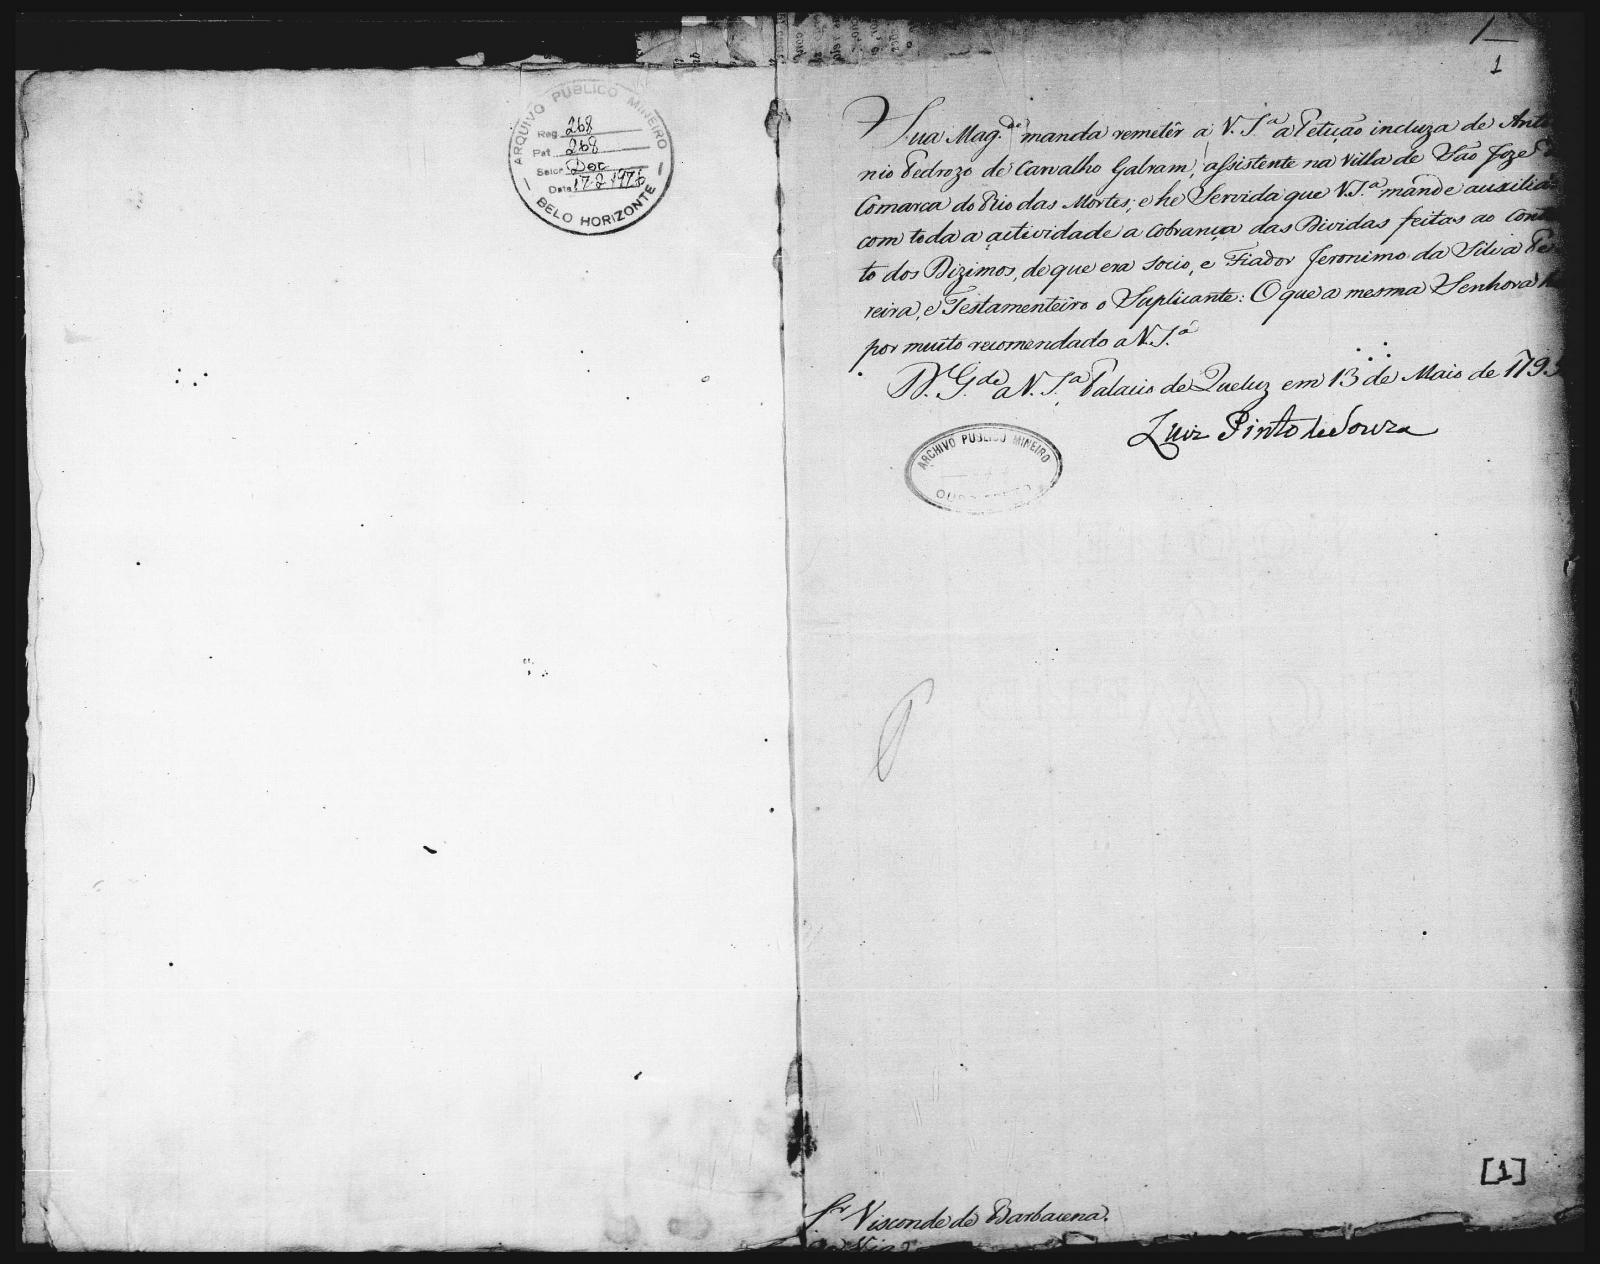 ARQUIVO PUBLICO MINEIRO
Reg. 268
Pat. 268
Setor Doc
Data 17-2-1976
BELO HORIZONTE
1
1
Sua Mag.de manda remetêr a V. S.a a Petição incluza de Anto
nio Pedrozo de Carvalho Galvam, assistente na Villa de São Joze
Comarca do Rio das Mortes; e he Servida que V. S.a mande auxiliar
com toda a actividade a cobrança das Dividas feitas ao Con
to dos Dizimos, de que era socio, e Fiador Jeronimo da Silva Fer
reira, e Testamenteiro o Suplicante: O que a mesma Senhora h
por muito recomendado a V. S.a
D.s G.de a V. S.a Palacio de Queluz em 13 de Maio de 179
Luiz Pinto de Souza
ARCHIVO PUBLICO MINEIRO
OURO PRETO
[1]
S.r Visconde de Barbacena.